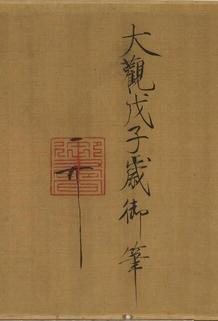 大觀戊子歲御筆